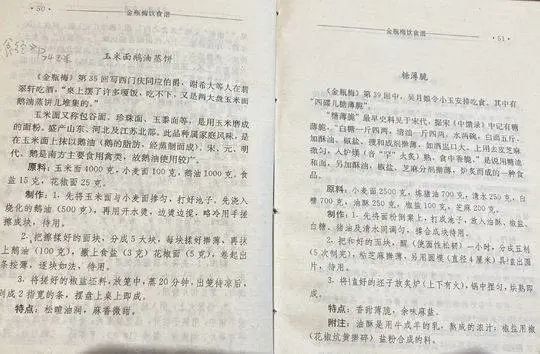 · 50 ·
金瓶梅饮食谱
玉米面鹅油蒸饼
《金瓶梅》第35回写西门庆同应伯爵、谢希大等人在翡
翠轩吃酒，“桌上摆了许多嗄饭，吃不下，又是两大盘玉米面
鹅油蒸饼儿堆集的。”
玉米面又称包谷面、珍珠面、玉黍面等，是用玉米磨成
的面粉。盛产山东、河北及江苏北部。此品种属家庭风味，是
在玉米面上抹以鹅油（鹅的脂肪、经蒸制而成）、宋、元、明
代，鹅是南方主要食用禽类，故鹅油使用较广。
原料：玉米面4000克，小麦面100克，鹅油1000克，食
盐15克，花椒面25克。
制作：1．先将玉米面与小麦面掺匀，打好池子。先浇入
烧化的鹅油（500克），再用开水烫，边烫边搅，略冷用手搓
擦成块，待用。
2．把擦揉好的面块，分成5大块，每块揉好擀薄，再抹
上鹅油（100克），撒上食盐（3克）花椒面（5克），卷起出
条按薄，逐块如法，待用。
3．将搓好的椒盐坯料，放笼中，蒸20分钟，出笼待凉后，
剁成2指宽的条，摆盘上桌上即成。
特点：松喧油润，麻香微咸。
金瓶梅饮食谱
· 51 ·
糖薄脆
《金瓶梅》第39回中，吴月娘令小玉安排吃食，其中有
“四碟儿糖薄脆”。
“糖薄脆”最早史料见于宋代，据宋《中馈录》中记有糖
薄脆，“白糖一斤四两，清油一斤四两，水两碗，白面五斤，
加酥油、椒盐，搜和成剂擀薄，如酒盅口大，上用去皮芝麻
撒匀，入炉烤熟，食中香脆。”是说用糖油
和面，另加酥油、椒盐、芝麻分剂擀薄，炉炙而成的一种食
品。
原料：小麦面2500克，炼猪油700克，清水250克，白
糖700克，油酥250克，椒盐100克，芝麻200克。
制作：1．先将面粉倒案上，打成池子，放入油酥、椒盐、
白糖、猪油及清水同调匀，揉合成块待用。
2．把和好的面块，醒（使面性松软）一小时，分成五剂
（5次制完），粘芝麻擀薄，另用圆模（直径4厘米）具出圆
片，待用。
3．将好的坯子放炙炉（上下有火），锅中摆匀，烘熟即
成。
特点：香甜薄脆，余味麻盐。
附注：油酥是用牛或羊的乳，熬成的浓汁；椒盐用椒
（花椒炕黄擀碎）盐粉合成的料。